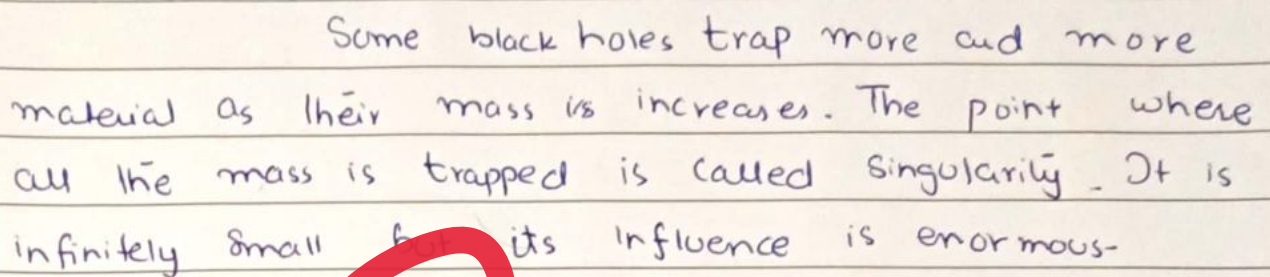 Some black holes trap more and more
material as their mass is increases. The point where
all the mass is trapped is called singularity. It is
infinitely small but its influence is enormous-